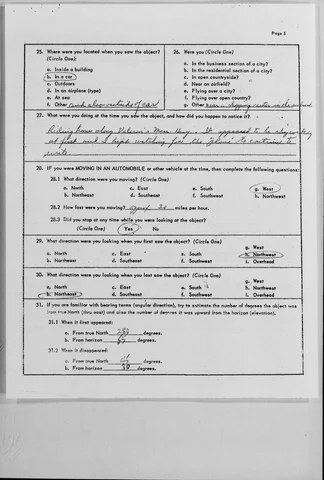 Page 5
25. Where were you located when you saw the object? (Circle One):
a. Inside a building
b. In a car
c. Outdoors
d. In an airplane (type)
e. At sea
f. Other and also outside of car
26. Were you (Circle One)
a. In the business section of a city?
b. In the residential section of a city?
c. In open countryside?
d. Near an airfield?
e. Flying over a city?
f. Flying over open country?
g. Other near shopping center
27. What were you doing at the time you saw the object, and how did you happen to notice it?
Riding home along Veteran's Mem. Hwy. It appeared to be
at first and I kept watching for the to continue to
28. IF you were MOVING IN AN AUTOMOBILE or other vehicle at the time, then complete the following questions:
28.1 What direction were you moving? (Circle One)
a. North c. East e. South g. West
b. Northeast d. Southeast f. Southwest h. Northwest
28.2 How fast were you moving? approx. miles per hour.
28.3 Did you stop at any time while you were looking at the object?
(Circle One) Yes No
29. What direction were you looking when you first saw the object? (Circle One)
a. North c. East e. South g. West
b. Northeast d. Southeast f. Southwest h. Northwest
i. Overhead
30. What direction were you looking when you last saw the object? (Circle One)
a. North c. East e. South g. West
b. Northeast d. Southeast f. Southwest h. Northwest
i. Overhead
31. If you are familiar with bearing terms (angular direction), try to estimate the number of degrees the object was
from true North (thru east) and also the number of degrees it was upward from the horizon (elevation).
31.1 When it first appeared:
a. From true North degrees.
b. From horizon degrees.
31.2 When it disappeared:
a. From true North degrees.
b. From horizon 20 degrees.